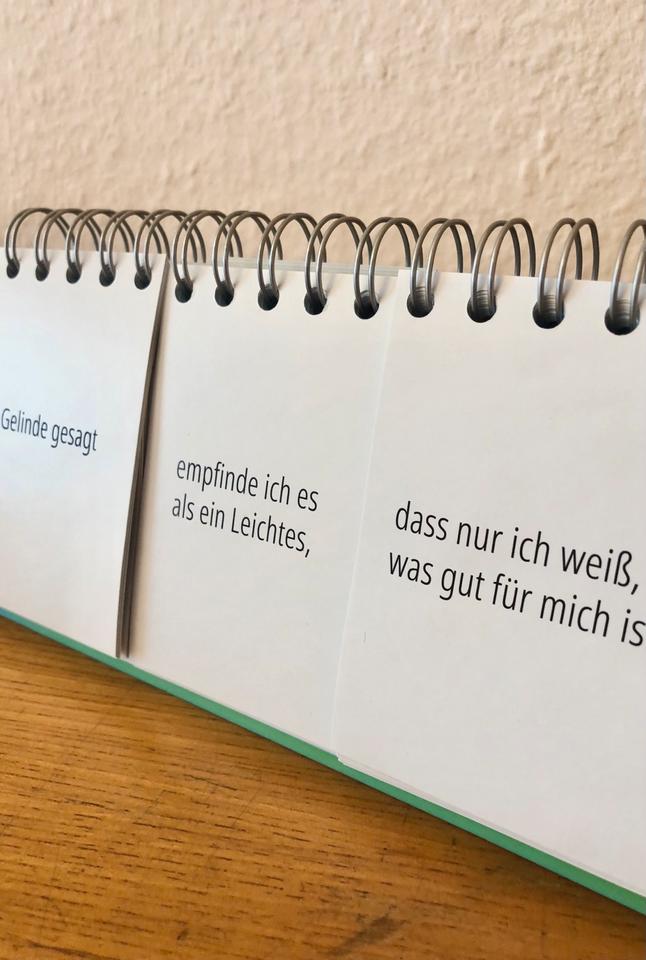 Gelinde gesagt
empfinde ich es
als ein Leichtes,
dass nur ich weiß,
was gut für mich is